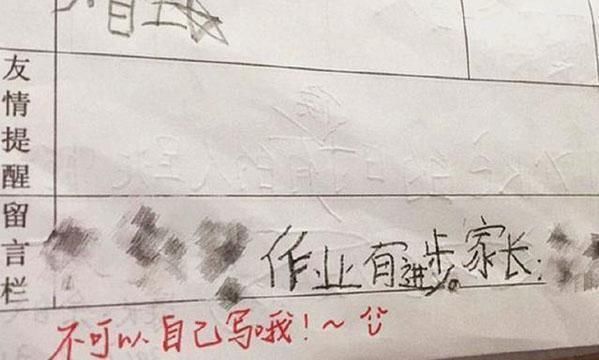 友情提醒留言栏
作业有进步。家长:
不可以自己写哦!~